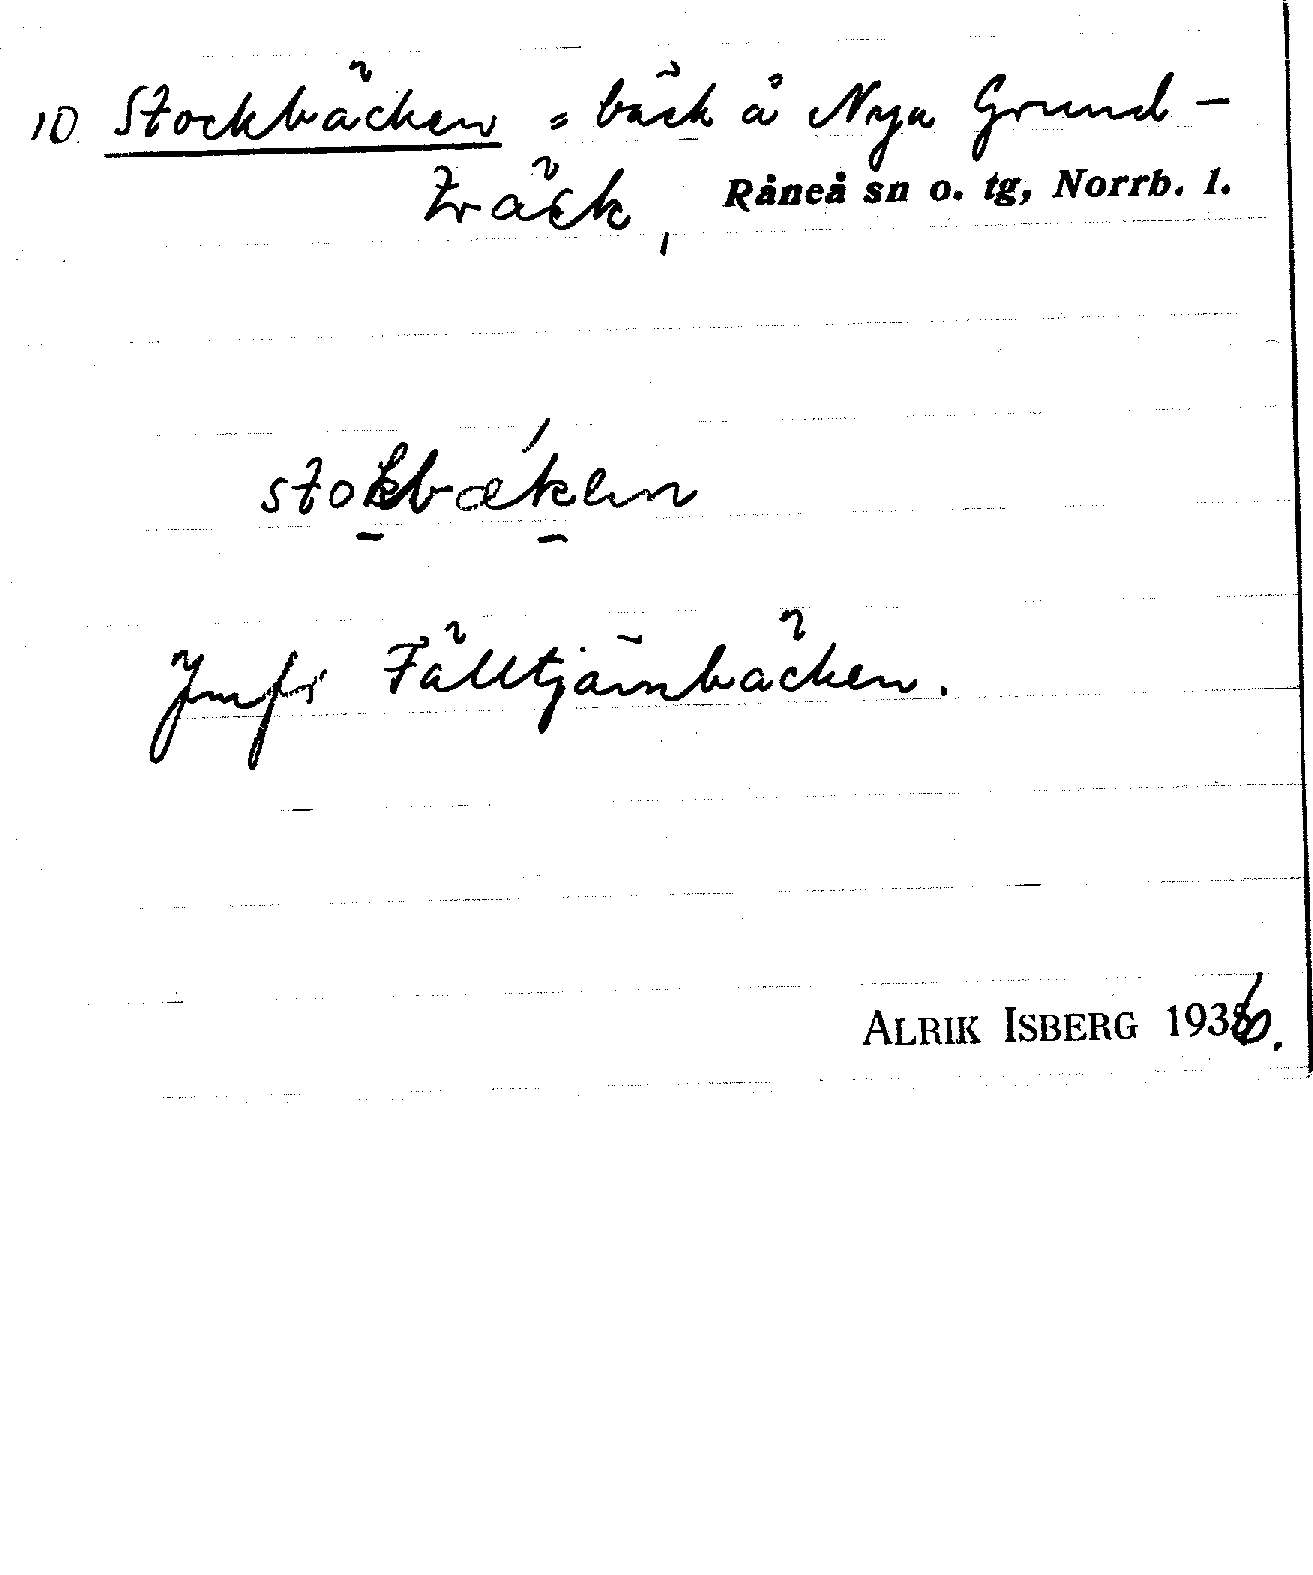 10 Stockbäcken = bäck å Nya Grund-
träck, Råneå sn o. tg, Norrb. l.
stokbæ´ken
Jmfr Fälltjärnbäcken.
ALRIK ISBERG 1936.